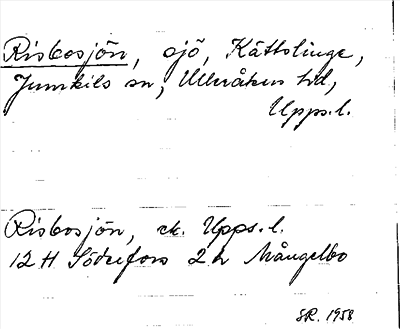 Risbosjön, sjö, Kättslinge,
Jumkils sn, Ulleråkers hd,
Upps.l.
Risbosjön, ek. Upps.l.
12 H Söderfors 2 h Mångelbo
SR. 1958